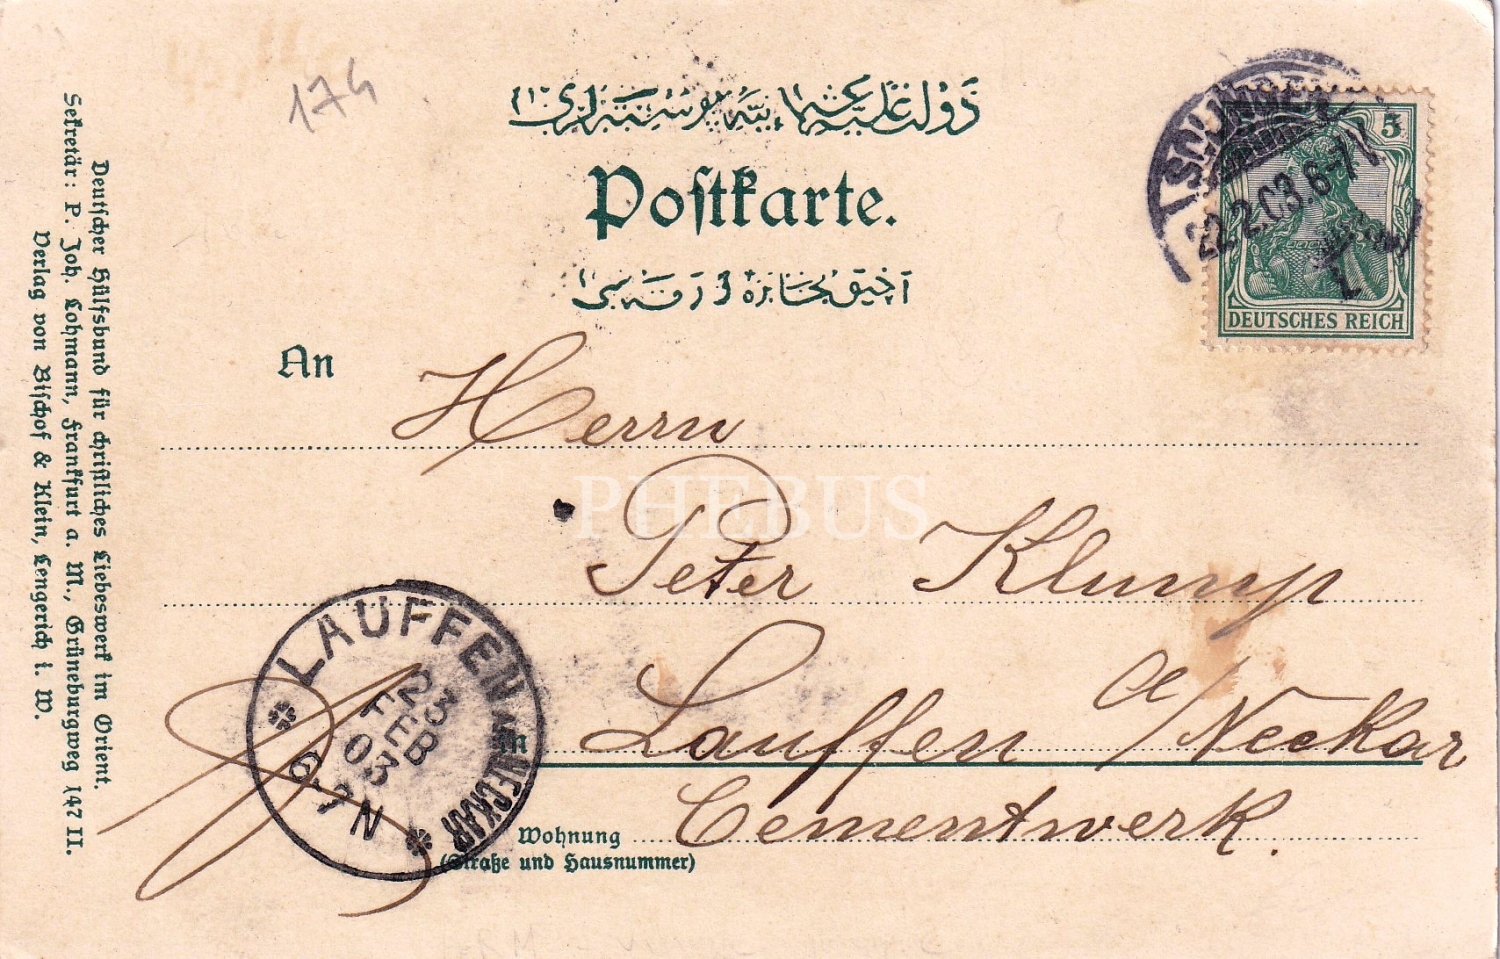 174
دولت علیهٔ عثمانیه پوسته لری
Postkarte.
5
DEUTSCHES REICH
22.2.03.6-7
An
Herrn
PHEBUS
Peter Klump
in Lauffen a/Neckar
Cementwerk.
Wohnung
(Straße und Hausnummer)
LAUFFEN A. NECKAR
23
FEB
03
6-7N
Deutscher Hülfsbund für christliches Liebeswerk im Orient.
Sekretär: P. Joh. Lohmann, Frankfurt a. M., Grüneburgweg 147 II.
Verlag von Bischof & Klein, Lengerich i. W.